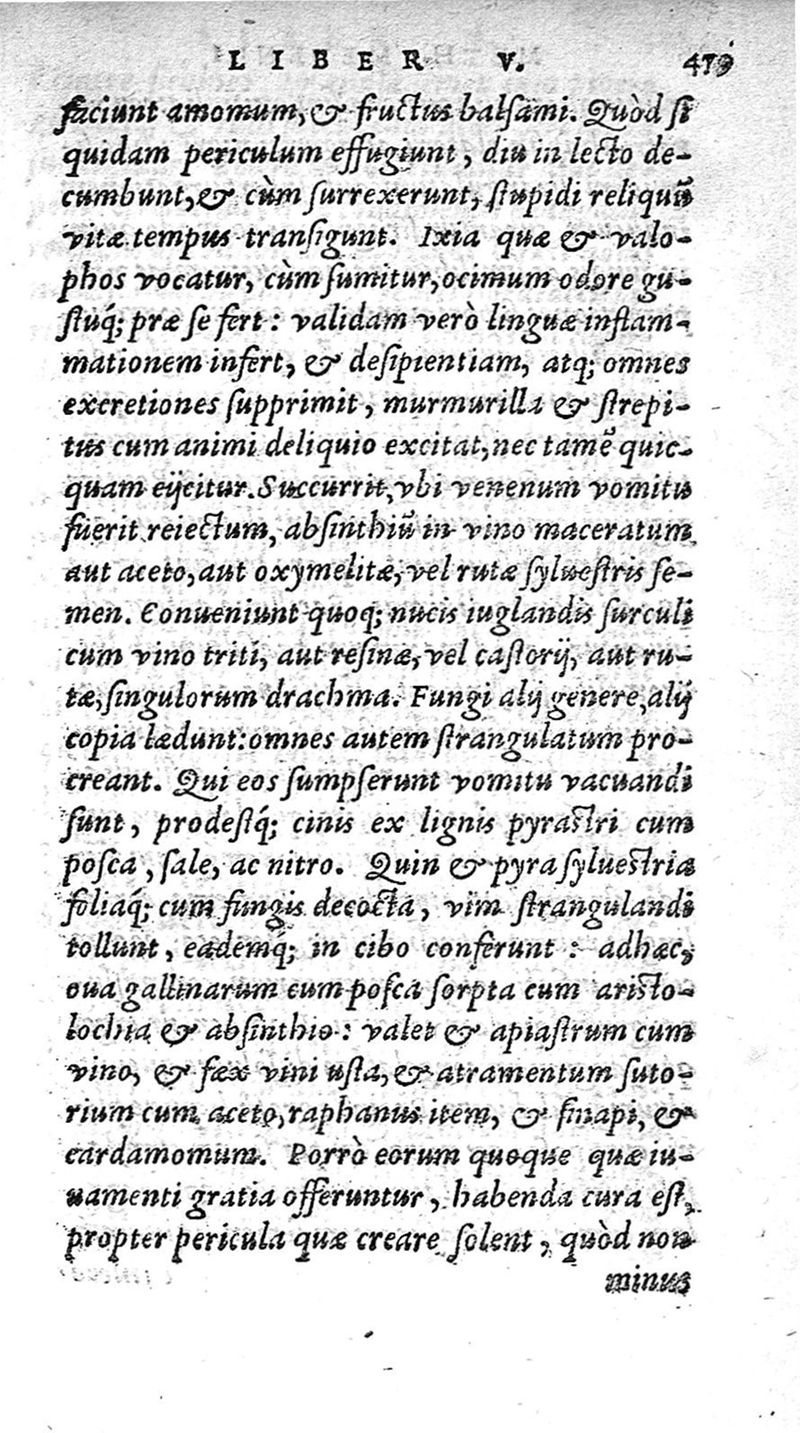 LIBER V. 479
faciunt amomum, & fructus balsami. Quòd si
quidam periculum effugiunt, diu in lecto de-
cumbunt, & cùm surrexerunt, stupidi reliquũ
vitæ tempus transigunt. Ixia quæ & valo-
phos vocatur, cùm sumitur, ocimum odore gu-
stuq́; præ se fert: validam verò linguæ inflam-
mationem infert, & desipientiam, atq; omnes
excretiones supprimit, murmurilla & strepi-
tus cum animi deliquio excitat, nec tamẽ quic-
quam eijcitur. Succurrit, vbi venenum vomitu
fuerit reiectum, absinthiũ in vino maceratum
aut aceto, aut oxymelitæ, vel rutæ syluestris se-
men. Conueniunt quoq; nucis iuglandis surculi
cum vino triti, aut resinæ, vel castorij, aut ru-
tæ, singulorum drachma. Fungi alij genere, alij
copia lædunt: omnes autem strangulatum pro-
creant. Qui eos sumpserunt vomitu vacuandi
sunt, prodestq́; cinis ex lignis pyrastri cum
posca, sale, ac nitro. Quin & pyra syluestria
foliaq́; cum fungis decocta, vim strangulandi
tollunt, eademq́; in cibo conferunt: adhæc,
oua gallinarum cum posca sorpta cum aristo-
lochia & absinthio: valet & apiastrum cum
vino, & fæx vini usta, & atramentum suto-
rium cum aceto, raphanus item, & sinapi, &
cardamomum. Porrò eorum quoque quæ iu-
uamenti gratia offeruntur, habenda cura est,
propter pericula quæ creare solent, quòd non
minus